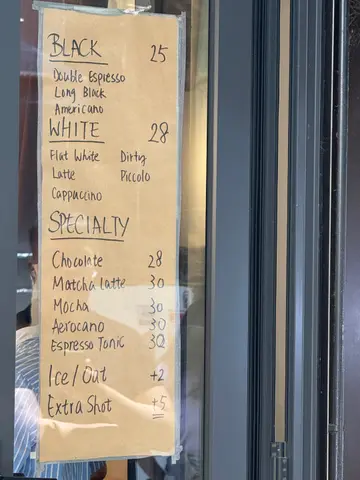 BLACK 25
Double Espresso
Long Black
Americano
WHITE 28
Flat White Dirty
Latte Piccolo
Cappuccino
SPECIALTY
Chocolate 28
Matcha Latte 30
Mocha 30
Aerocano 30
Espresso Tonic 30
Ice/Oat +2
Extra Shot +5